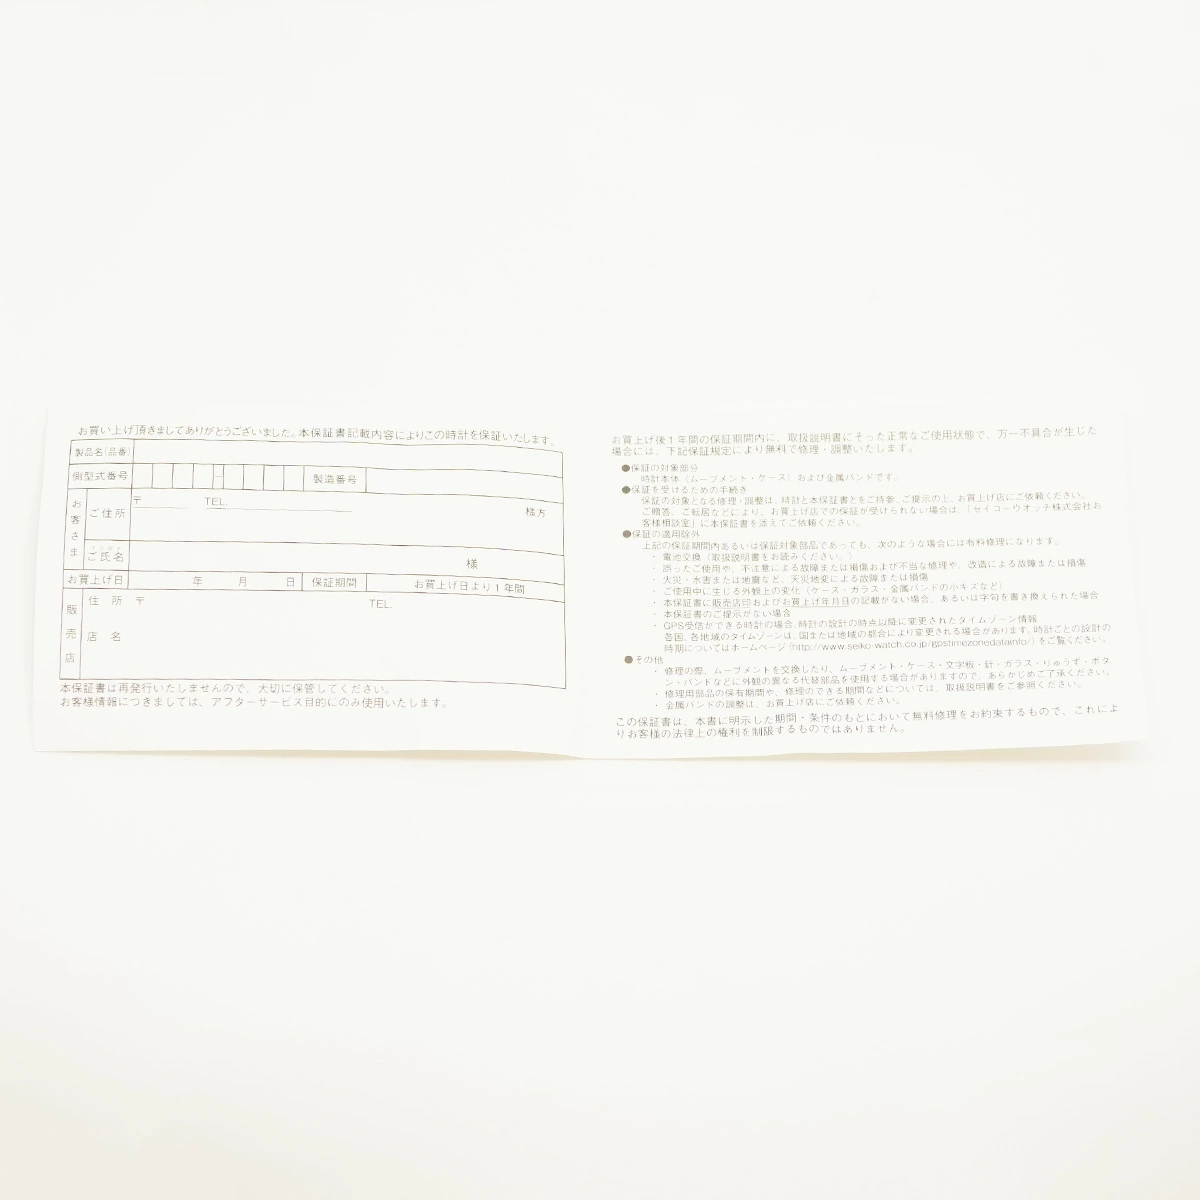 お買い上げ頂きましてありがとうございました。本保証書記載内容によりこの時計を保証いたします。
製品名(品番)
側型式番号
−
製造番号
お客さま
ご住所
〒
TEL.
様方
ご氏名
様
お買上げ日
年 月 日
保証期間
お買上げ日より1年間
販売店
住 所 〒
TEL.
店 名
本保証書は再発行いたしませんので、大切に保管してください。
お客様情報につきましては、アフターサービス目的にのみ使用いたします。
お買上げ後1年間の保証期間内に、取扱説明書にそった正常なご使用状態で、万一不具合が生じた
場合には、下記保証規定により無料で修理・調整いたします。
●保証の対象部分
時計本体（ムーブメント・ケース）および金属バンドです。
●保証を受けるための手続き
保証の対象となる修理・調整は、時計と本保証書とをご持参、ご提示の上、お買上げ店にご依頼ください。
ご贈答、ご転居などにより、お買上げ店での保証が受けられない場合は、「セイコーウオッチ株式会社お
客様相談室」に本保証書を添えてご依頼ください。
●保証の適用除外
上記の保証期間内あるいは保証対象部品であっても、次のような場合には有料修理になります。
・ 電池交換（取扱説明書をお読みください。）
・ 誤ったご使用や、不注意による故障または損傷および不当な修理や、改造による故障または損傷
・ 火災・水害または地震など、天災地変による故障または損傷
・ ご使用中に生じる外観上の変化（ケース・ガラス・金属バンドの小キズなど）
・ 本保証書に販売店印およびお買上げ年月日の記載がない場合、あるいは字句を書き換えられた場合
・ 本保証書のご提示がない場合
・ GPS受信ができる時計の場合、時計の設計の時点以降に変更されたタイムゾーン情報
各国、各地域のタイムゾーンは、国または地域の都合により変更される場合があります。時計ごとの設計の
時期についてはホームページ（http://www.seiko-watch.co.jp/gpstimezonedatainfo/）をご覧ください。
●その他
・ 修理の際、ムーブメントを交換したり、ムーブメント・ケース・文字板・針・ガラス・りゅうず・ボタ
ン・バンドなどに外観の異なる代替部品を使用する場合がありますので、あらかじめご了承ください。
・ 修理用部品の保有期間や、修理のできる期間などについては、取扱説明書をご参照ください。
・ 金属バンドの調整は、お買上げ店にご依頼ください。
この保証書は、本書に明示した期間・条件のもとにおいて無料修理をお約束するもので、これによ
りお客様の法律上の権利を制限するものではありません。